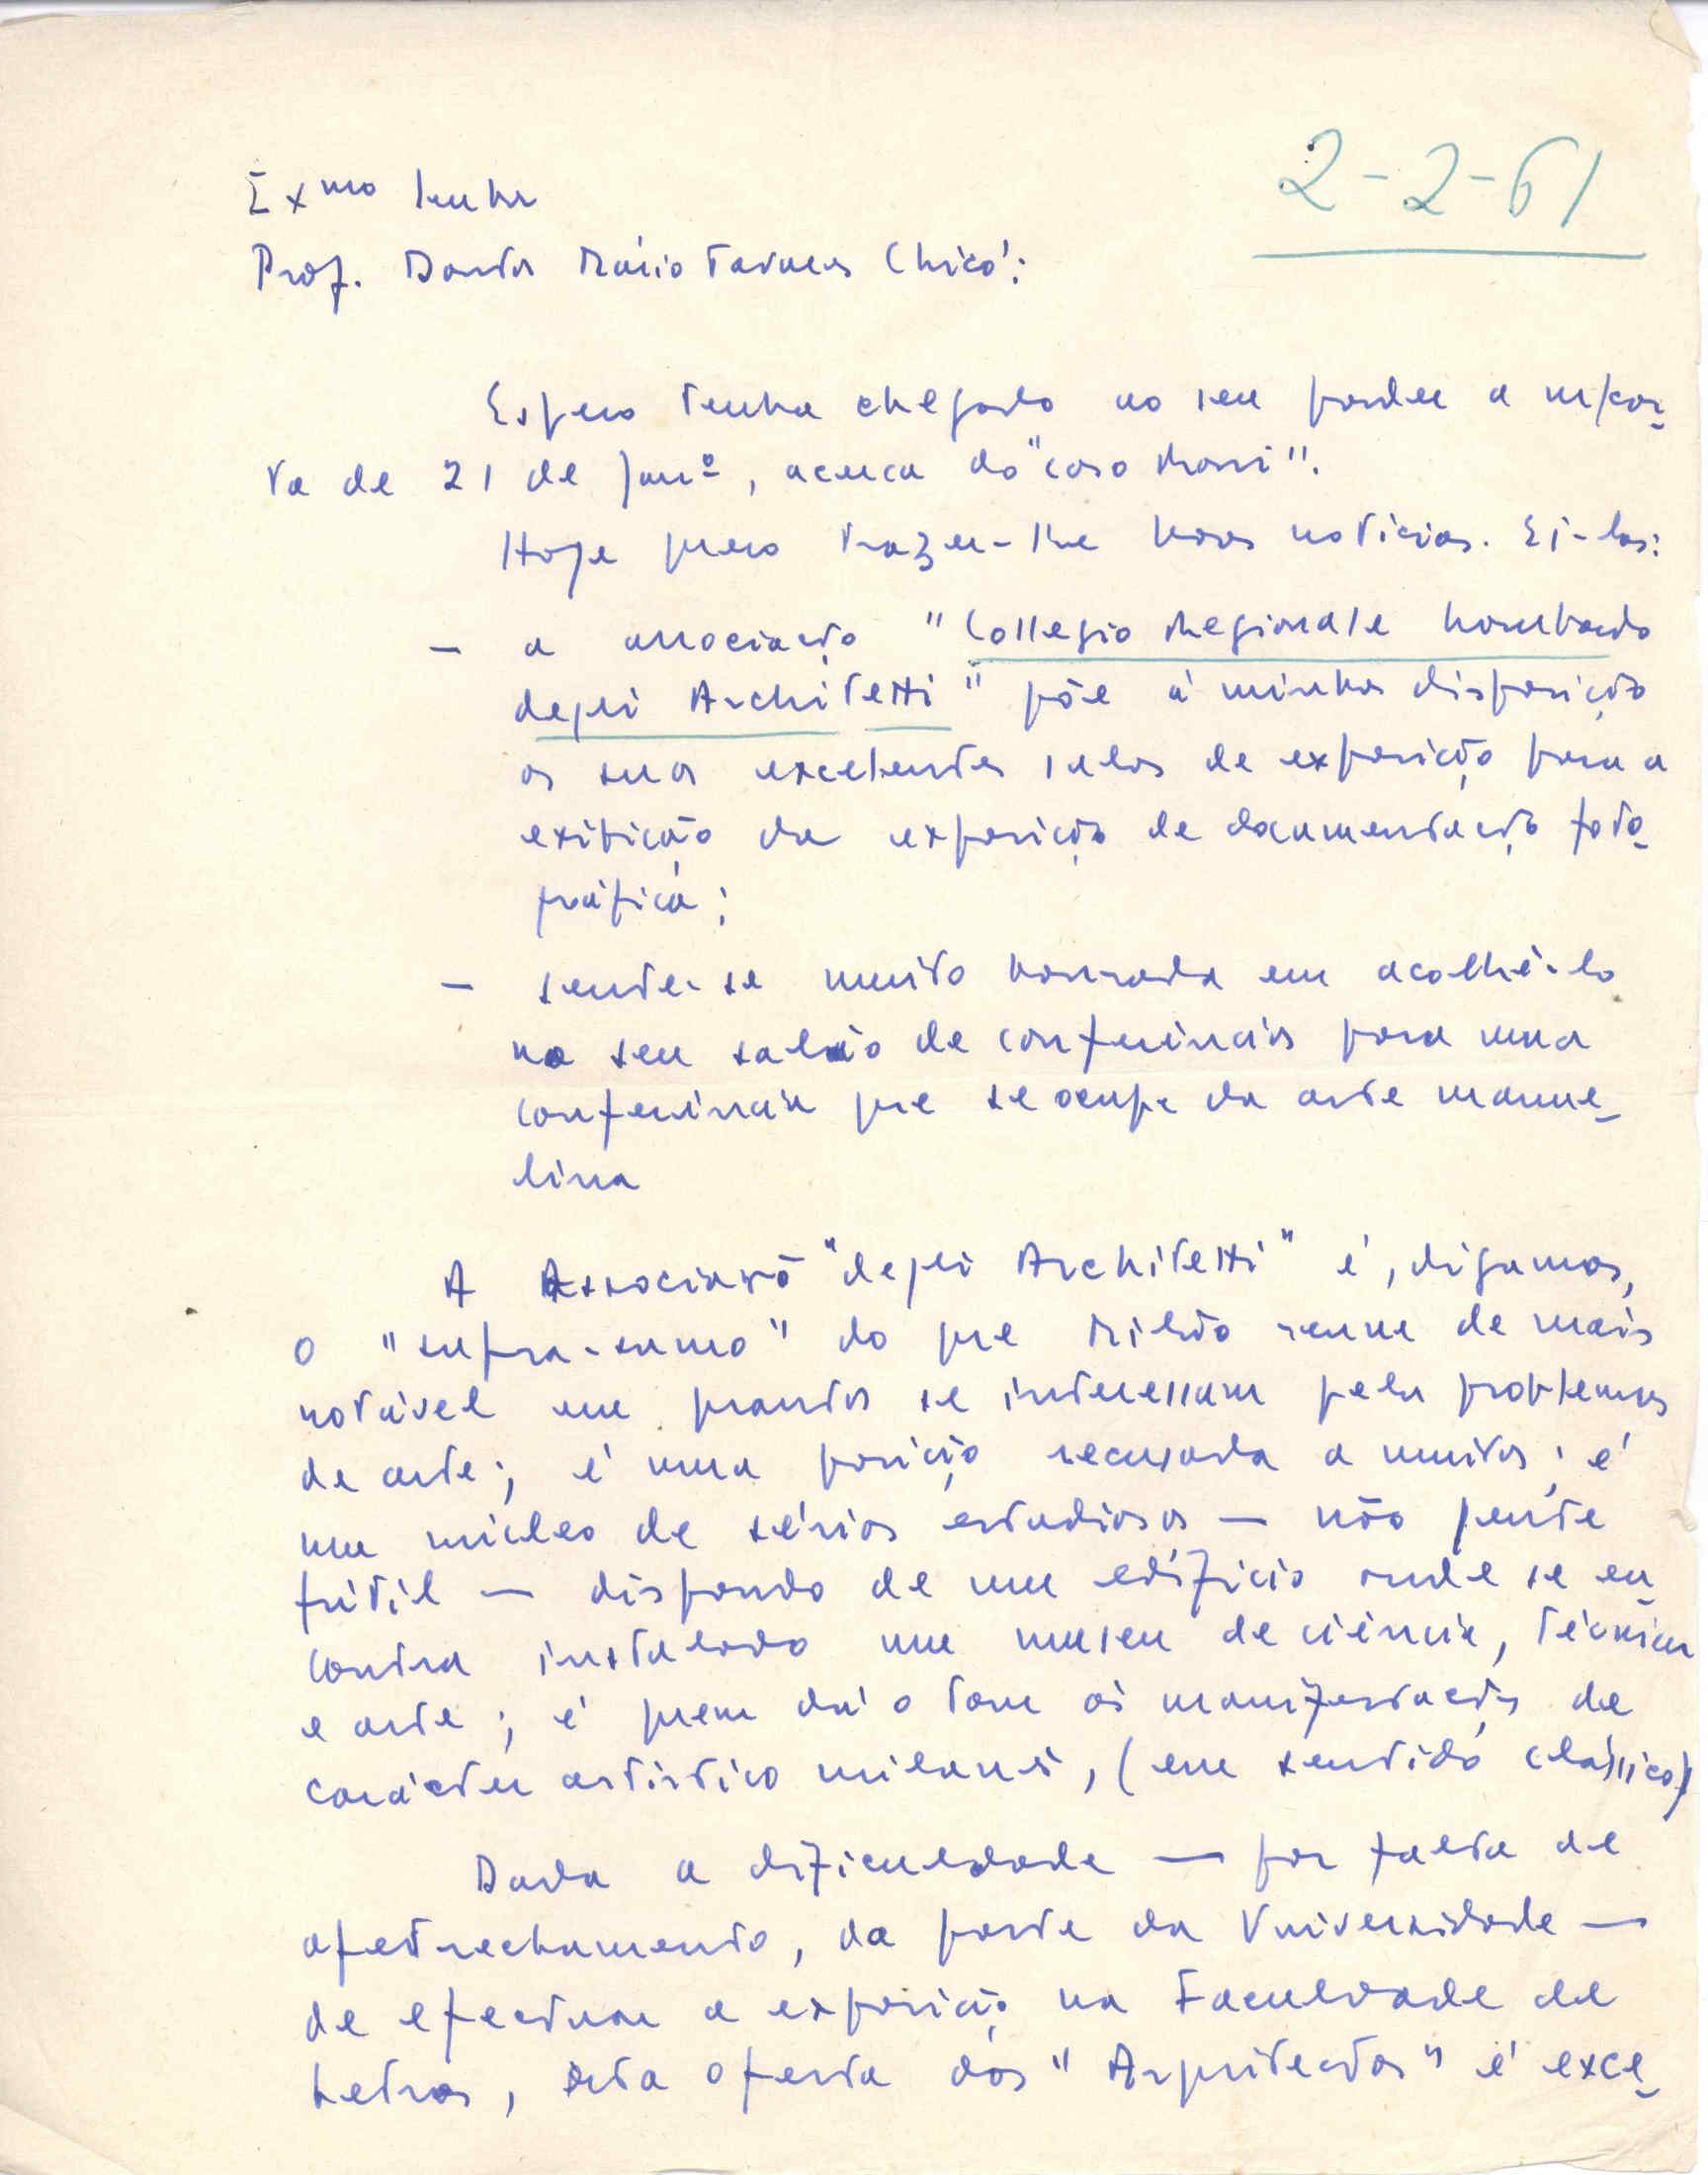 2-2-61
Exmo Senhor
Prof. Doutor Mário Tavares Chicó:
Espero tenha chegado ao seu poder a m/car-
ta de 21 de Janº, acerca do "caso
Hoje quero trazer-lhe novas notícias. Ei-las:
- a associação "Collegio Regionale Lombardo
degli Architetti" põe à minha disposição
as suas excelentes salas de exposição para a
exibição da exposição de documentação foto-
gráfica;
- sente-se muito honrada em acolhê-lo
no seu salão de conferências para uma
conferência que se ocupe da arte manue-
lina
A Associação "degli Architetti" é, digamos,
o "supra-sumo" do que Milão reune de mais
notável em quantos se interessam pelos problemas
de arte; é uma posição recusada a muitos; é
um núcleo de sérios estudiosos — não gente
fútil — dispondo de um edifício onde se en-
contra instalado um museu de ciência, técnica
e arte; é quem dá o tom às manifestações de
carácter artístico milanês, (em sentido clássico)
Dada a dificuldade — por falta de
apetrechamento, da parte da Universidade —
de efectuar a exposição na Faculdade de
Letras, esta oferta dos "Arquitectos" é exce-